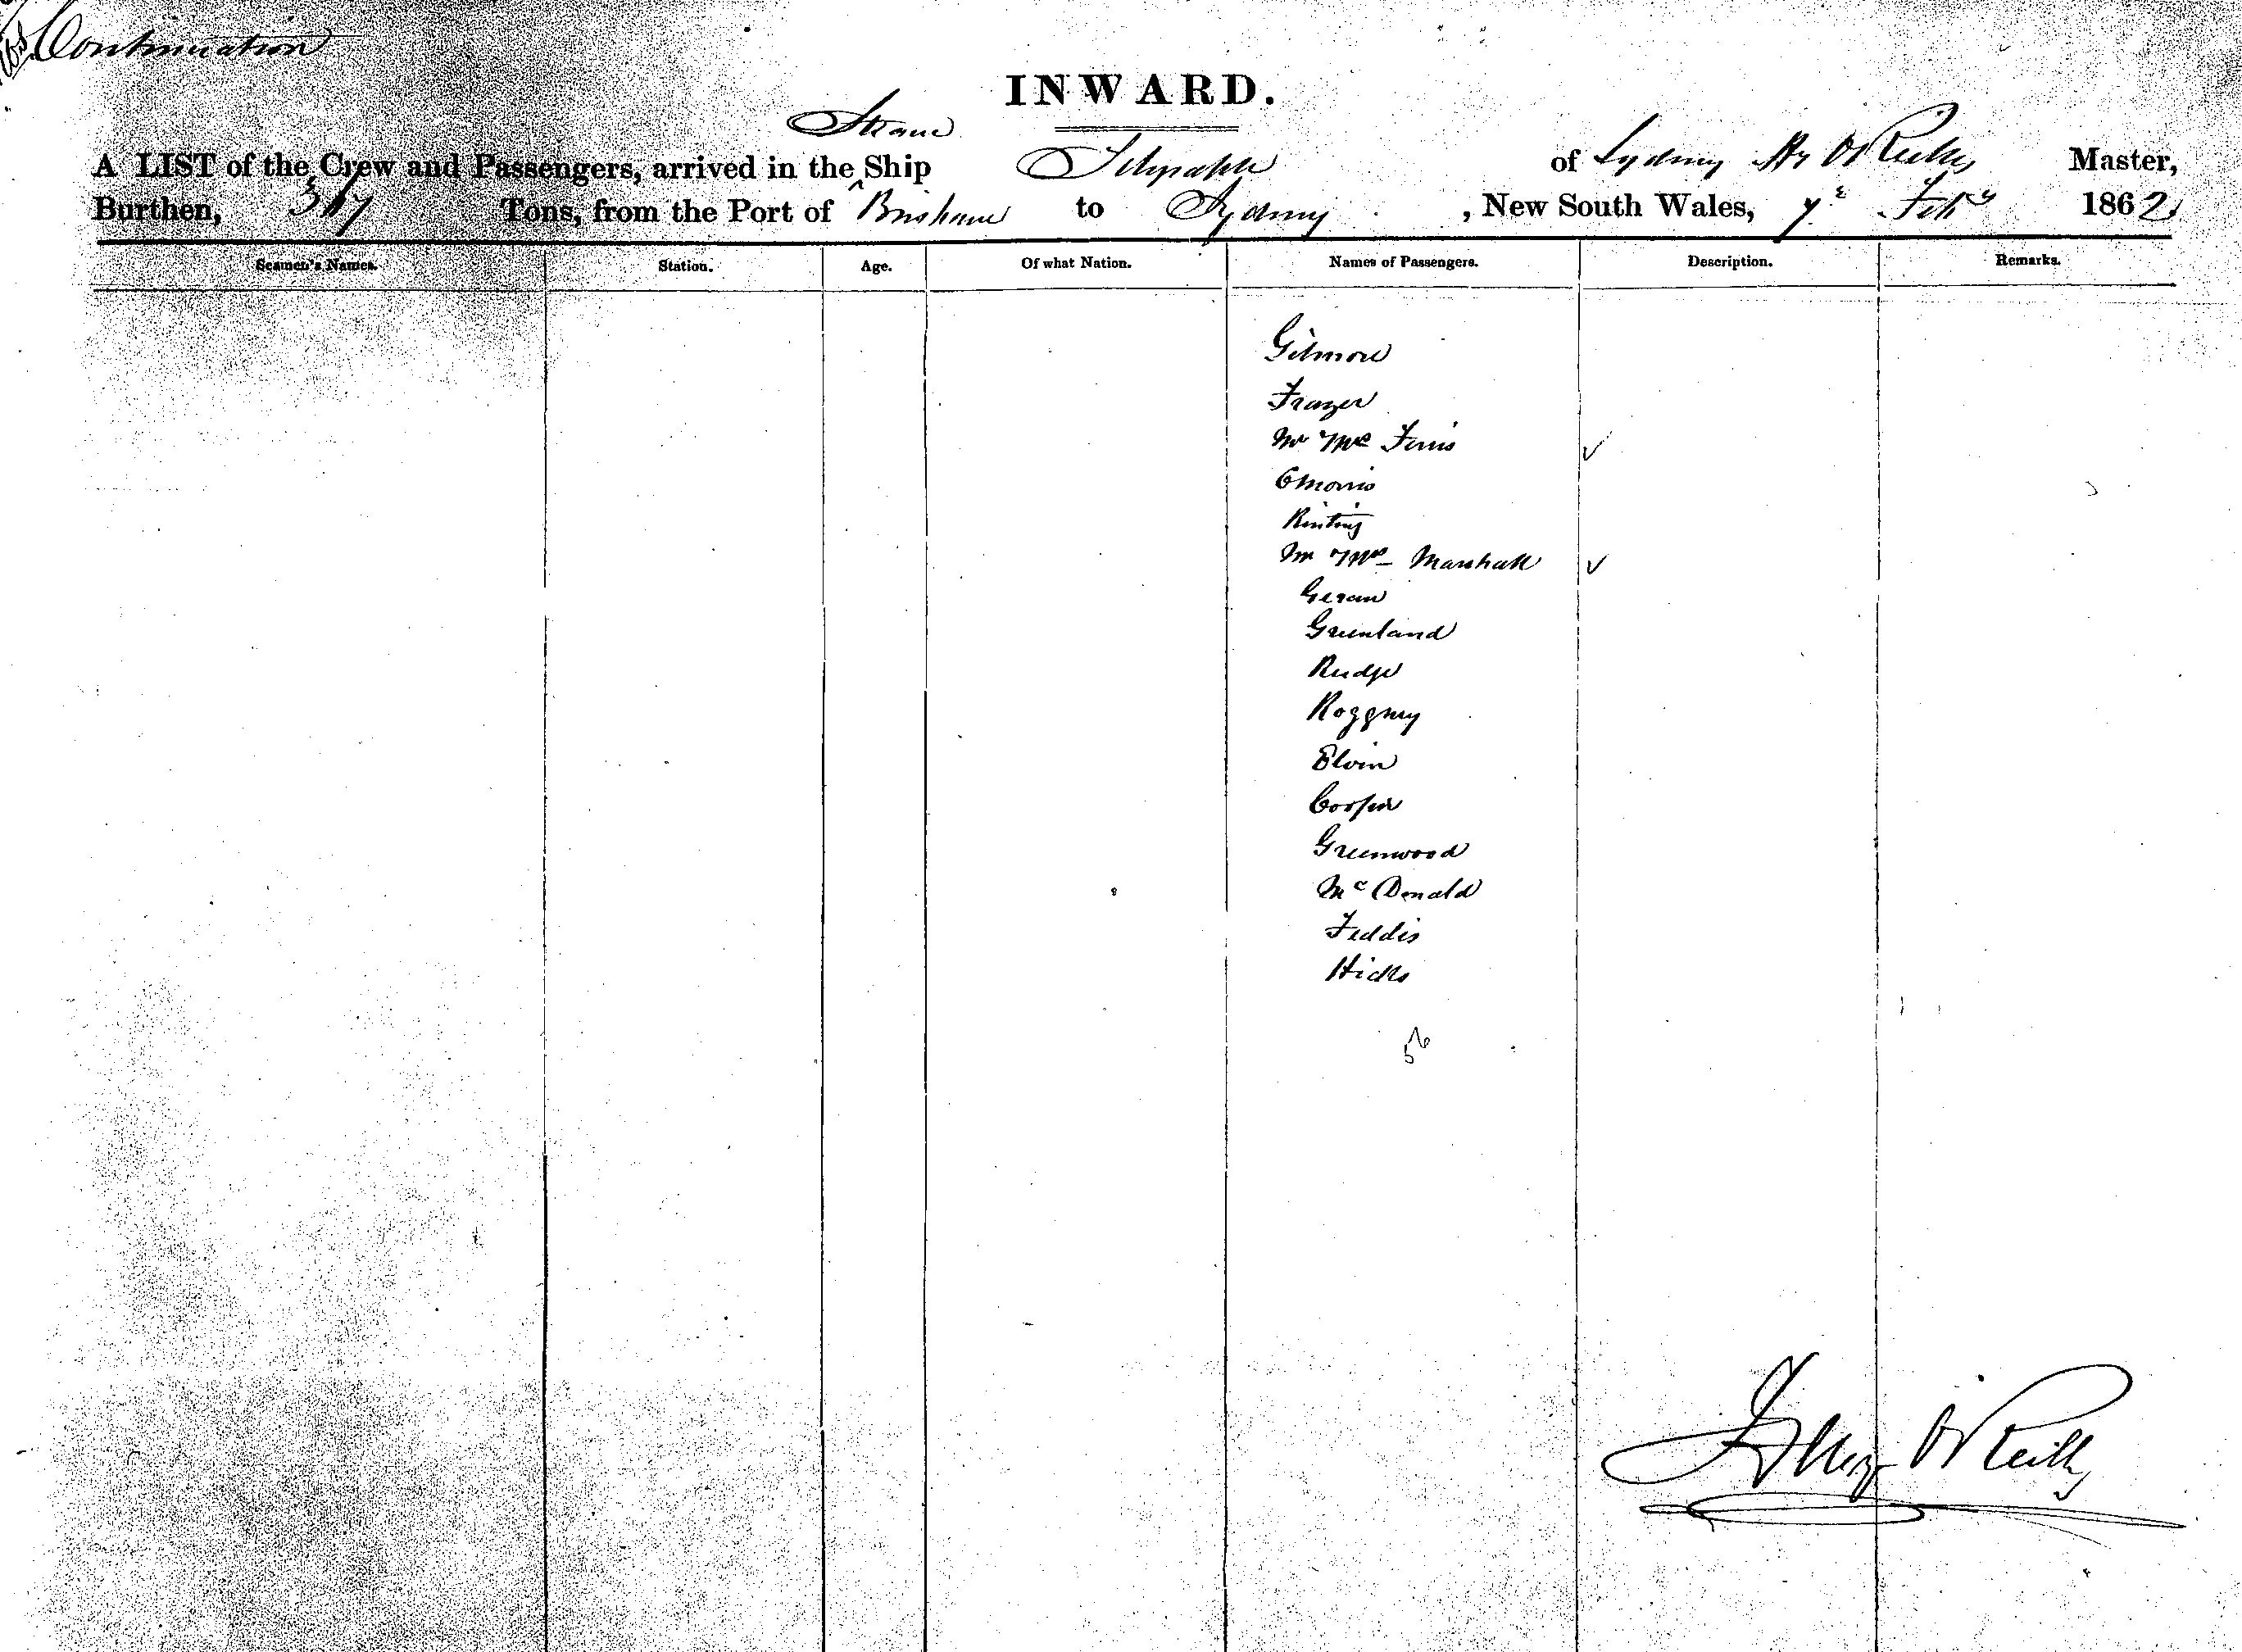 Continuation
INWARD.
Steam
A LIST of the Crew and Passengers, arrived in the Ship Telegraph of Sydney Hy O'Reilly Master,
Burthen, 367 Tons, from the Port of Brisbane to Sydney, New South Wales, 7th Feby 1862
Seamen's Names. Station. Age. Of what Nation. Names of Passengers. Description. Remarks.
Gilmore
Frazer
Mr & Mrs Ferris ✓
Morris
Mr & Mrs Marshall ✓
Greenland
Rudge
Elvin
Cooper
Greenwood
Mc Donald
Feddis
Hicks
56
O'Reilly